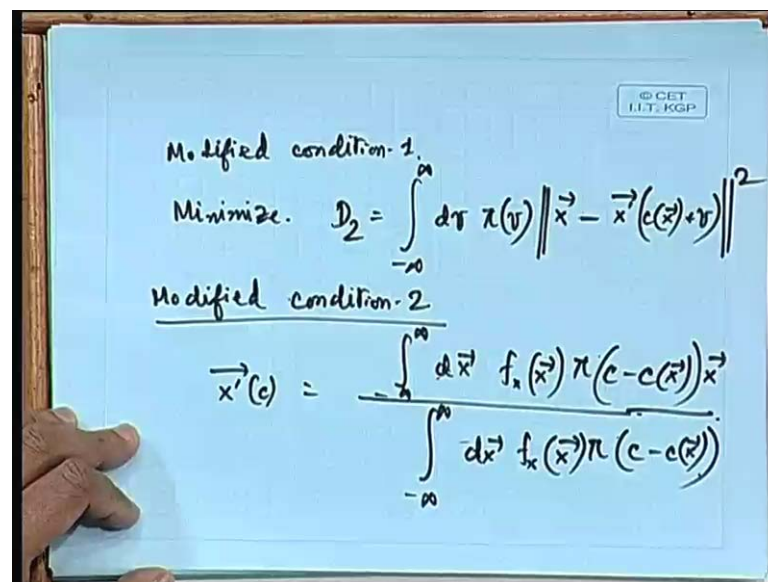 © CET
I.I.T. KGP
Modified condition-1.
Minimize. D₂ = ∫_{-∞}^{∞} dv π(v) ‖x⃗ - x⃗(c(x⃗)+v)‖²
Modified condition-2
x⃗'(c) = ∫_{-∞}^{∞} dx⃗ fₓ(x⃗) π(c-c(x⃗)) x⃗
∫_{-∞}^{∞} dx⃗ fₓ(x⃗) π(c-c(x⃗))